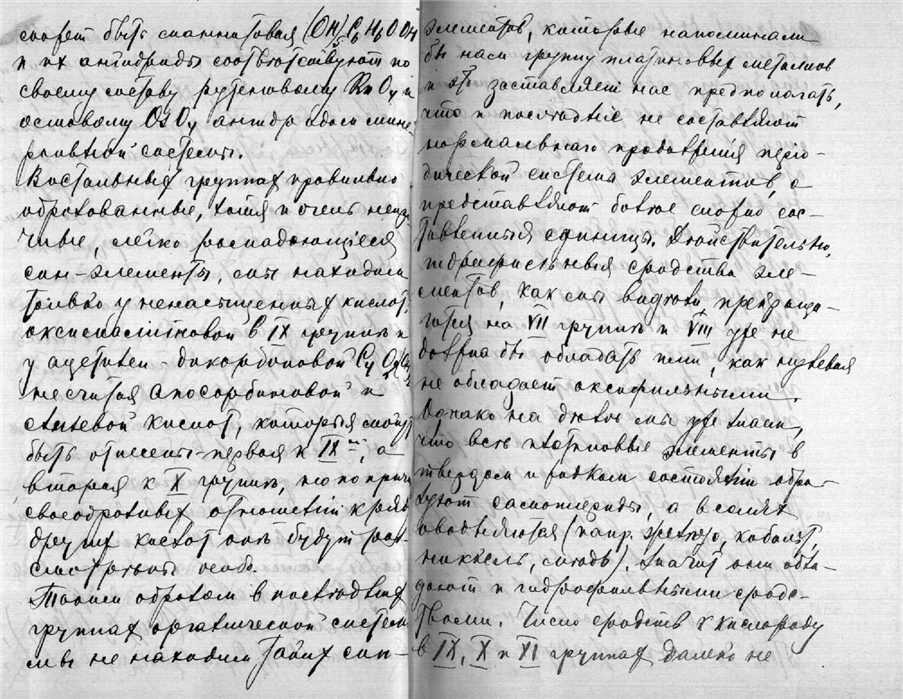 может быть маннитовая (OH)₅C₆H₆O OH
и их ангидриды соответствуют по
своему составу рутеновому RuO₄ и
осмовому OsO₄ ангидридам мине-
ральной системы.
В остальных группах правильно
образованные, хотя и очень
легко распадающіеся
сан-элементы, мы находим
только у ненасыщенных кислот,
в IX группе и
у ацетилен-дикарбоновой
не считая апосорбиновой и
кислот, которыя могут
быть отнесены - первая к IXой, а
вторая к X группе, но по причине
своеобразных отношений к ряду
других кислот оне будут рас-
смотрены особо.
Таким образом в последних
группах органической системы
мы не находим таких сан-
элементов, которые напоминали
бы нам группу платиновых металлов
и это заставляет нас предполагать,
что и последніе не составляют
нормальнаго проявленія періо-
дической системы элементов, а
представляют более сложно сос-
тавленныя единицы. Действительно,
гидрофильныя сродства эле-
ментов, как мы видели прекраща-
ются на VII группе и VIII уже не
должна бы обладать ими, как нулевая
не обладает оксифильными.
Однако на деле мы уже знаем,
что все платиновые элементы в
твердом и жидком состояніи обра-
зуют самополимериды, а в солях
оводняются (напр. железо, кобальт,
никкель, медь). Значит они обла-
дают и гидрофильными сродс-
твами. Число сродств к кислороду
в IX, X и XI группах далеко не